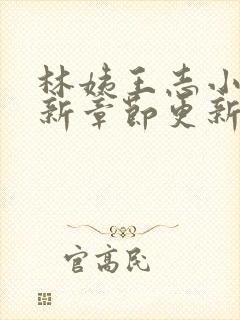 林姨王志小
新章节更新
官高民